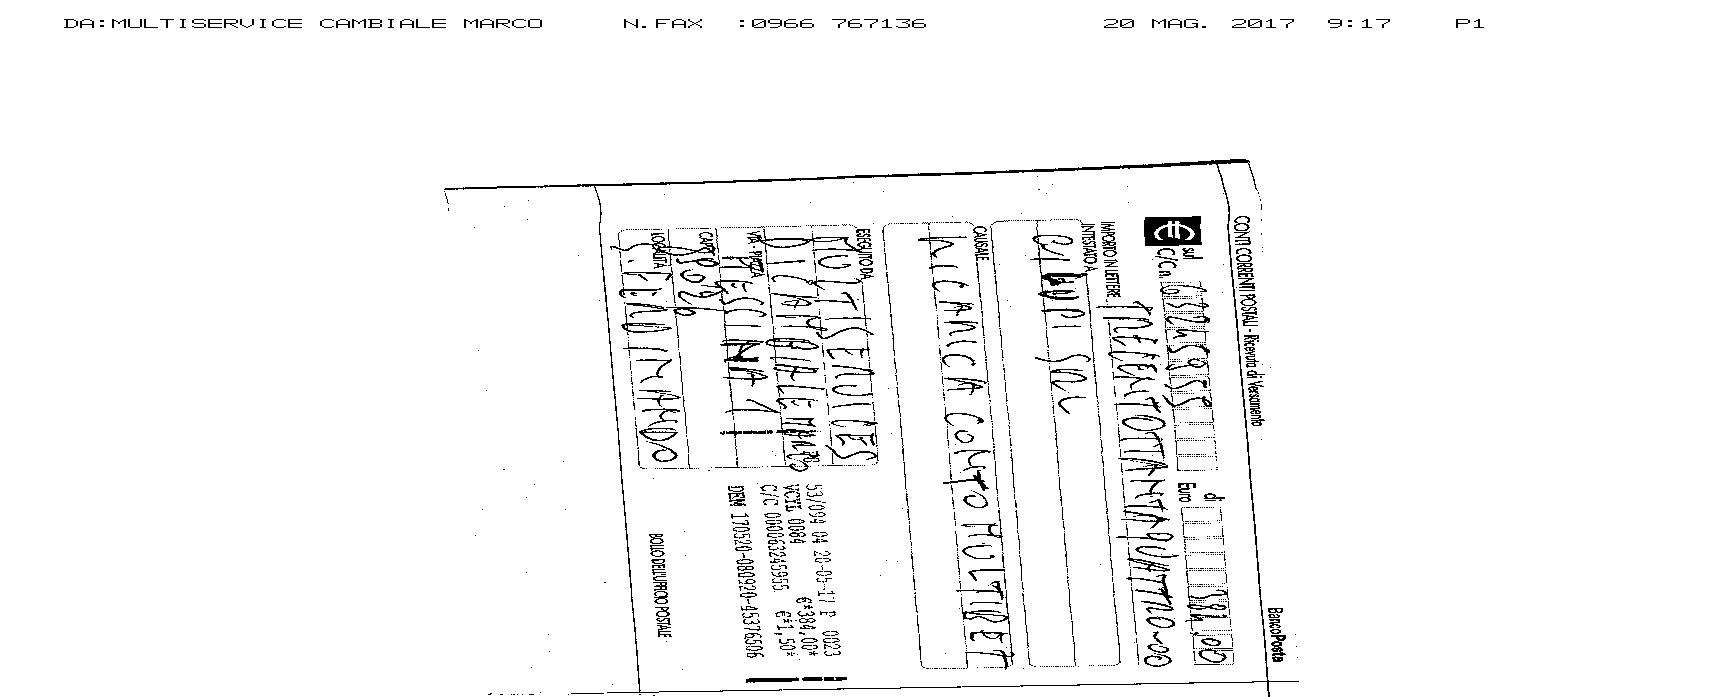 DA:MULTISERVICE CAMBIALE MARCO N.FAX :0966 767136 20 MAG. 2017 9:17 P1
CONTI CORRENTI POSTALI - Ricevuta di Versamento BancoPosta
sul C/C n. 63245955 di Euro 384,00
IMPORTO IN LETTERE TRECENTOTTANTAQUATTRO-00
INTESTATO A
SRL
CAUSALE
RICARICA CONTO MULTIRETE
ESEGUITO DA
MULTISERVICES
DI CAMBIALE MARCO
VIA - PIAZZA
MESSINA 1
CAP
89026
LOCALITÀ
S. FERDINANDO
53/094 04 20-05-17 P 0023
VCYL 0084 €*384,00*
C/C 000063245955 €*1,50*
DEM 170520-080920-45376506
BOLLO DELL'UFFICIO POSTALE